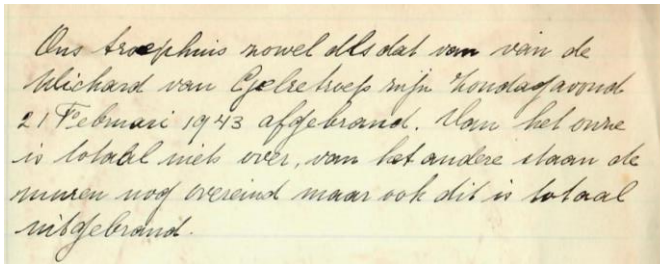 Ons troephuis zowel als dat van van de
Wichard van Gelretroep zijn Zondagavond
21 Februari 1943 afgebrand. Van het onze
is totaal niets over, van het andere staan de
muren nog overeind maar ook dit is totaal
uitgebrand.